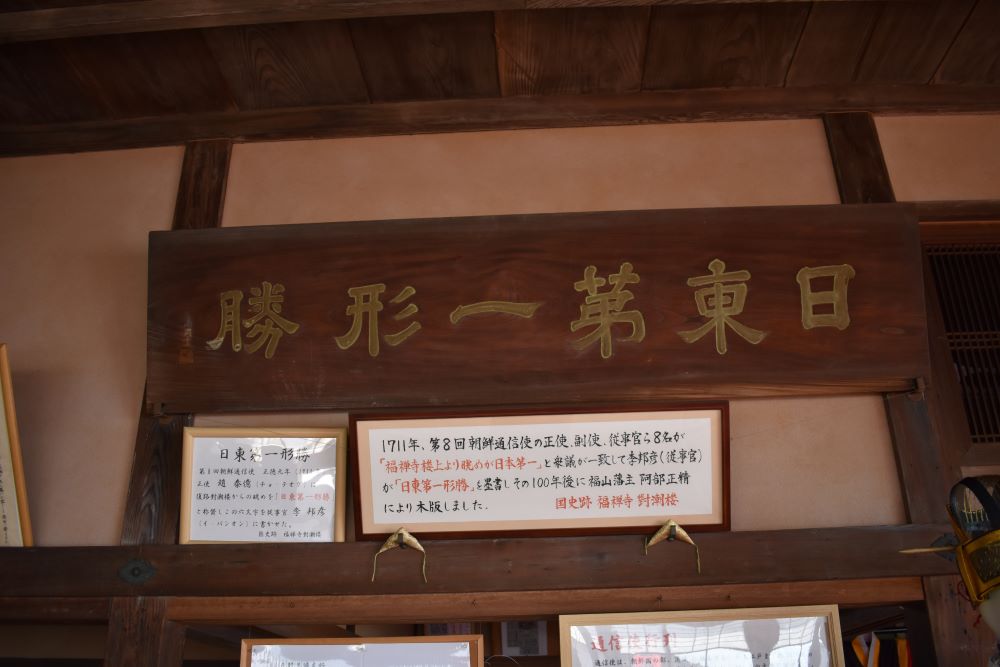 日東第一形勝
日東第一形勝
第8回朝鮮通信使 正徳元年(1711)
正使 趙 泰億(チョ・テオク)に
復路対潮楼からの眺めを「日東第一形勝
と称賛しこの六文字を従事官 李 邦彦
(イ・バンオン)に書かせた。
国史跡 福禅寺對潮楼
1711年、第8回朝鮮通信使の正使、副使、従事官ら8名が
「福禅寺楼上より眺めが日本第一」と衆議が一致して李邦彦(従事官)
が「日東第一形勝」を墨書しその100年後に福山藩主 阿部正精
により木版しました. 国史跡 福禅寺 對潮楼